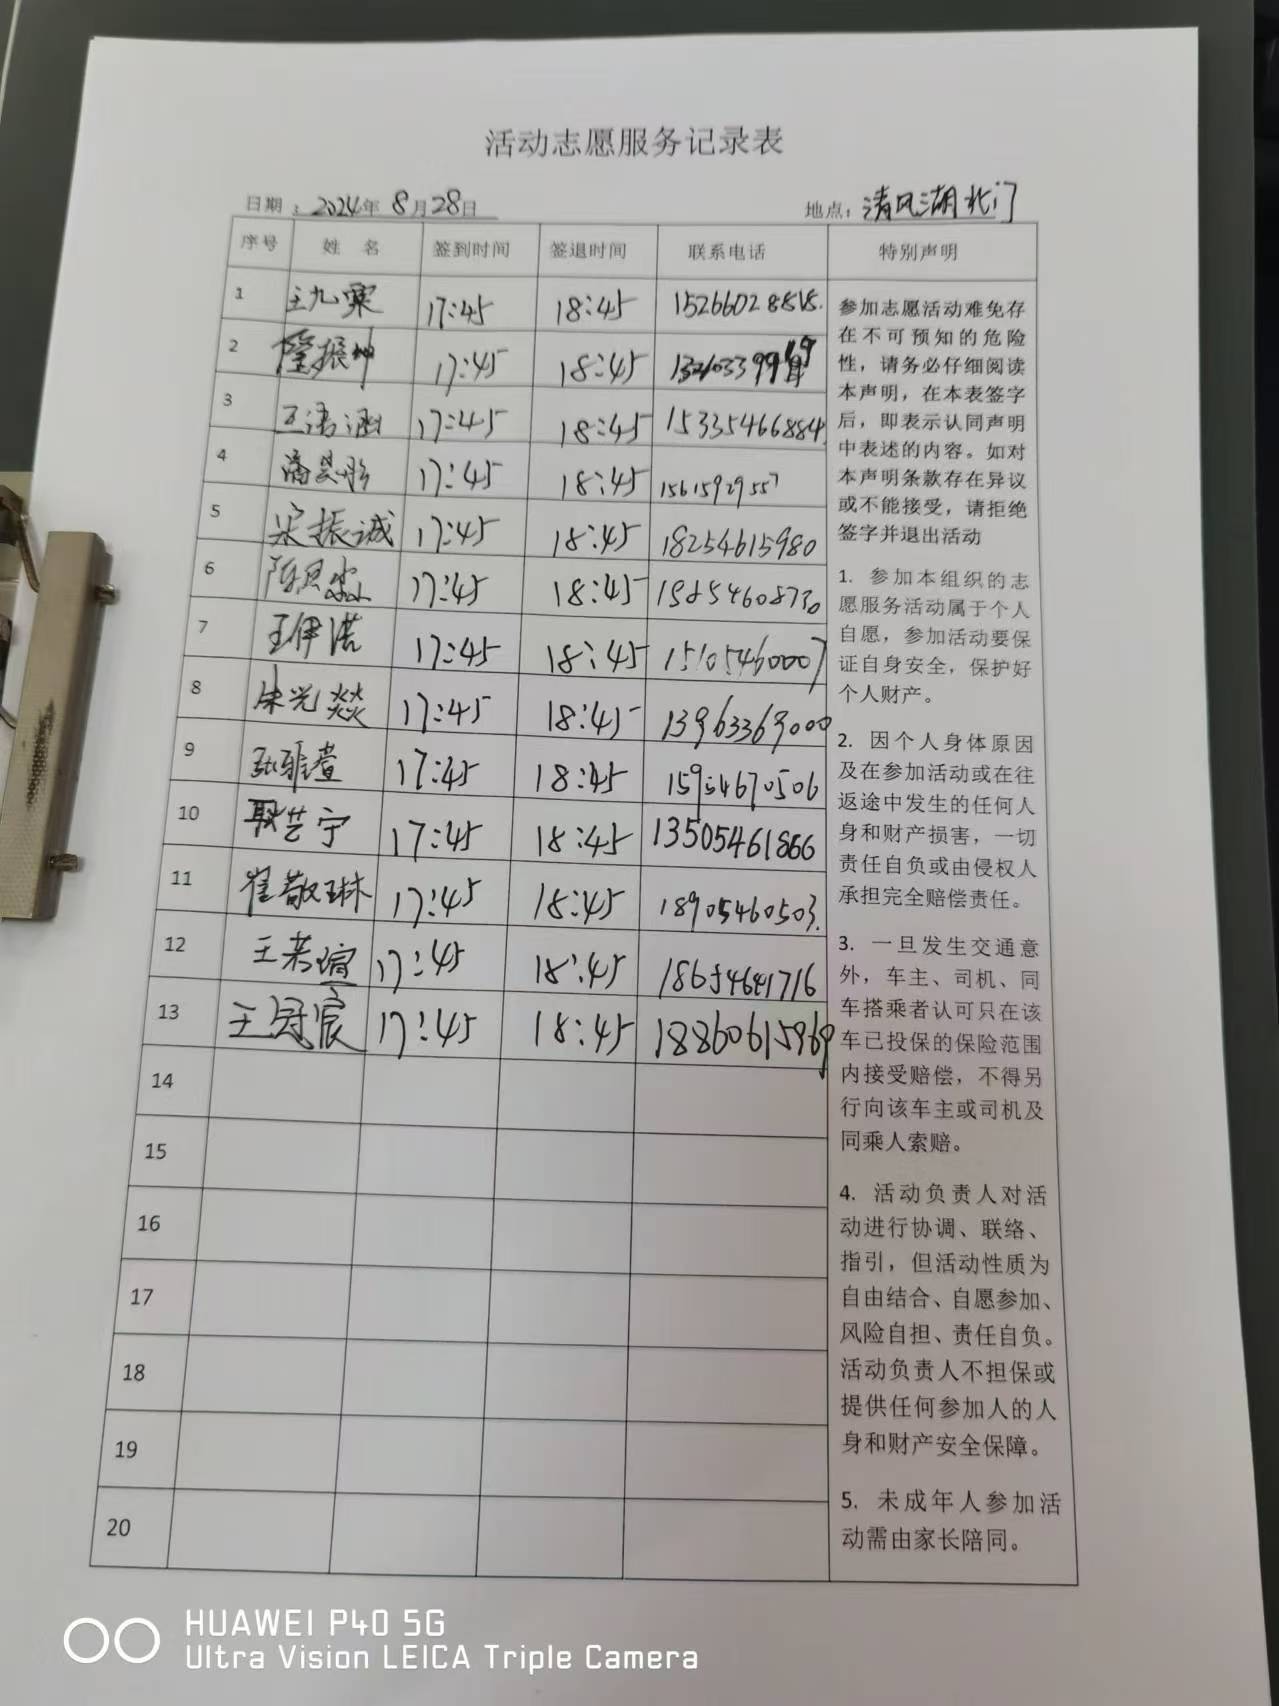 活动志愿服务记录表
日期：2024年8月28日 地点：清风湖北门
序号 姓名 签到时间 签退时间 联系电话 特别声明
1 王九霖 17:45 18:45
2 隆振坤 17:45 18:45
3 王语涵 17:45 18:45 15335466884
4 潘昊彤 17:45 18:45 15615929557
5 宋振诚 17:45 18:45 18254615980
6 陈思淼 17:45 18:45 15854608730
7 王伊诺 17:45 18:45 15105460007
8 朱光燚 17:45 18:45 13963369000
9 张雅萱 17:45 18:45 15954670506
10 耿艺宁 17:45 18:45 13505461866
11 崔敬琳 17:45 18:45 18905460503.
12 王若瑄 17:45 18:45 18654641716
13 王冠宸 17:45 18:45 18860615969
14
15
16
17
18
19
20
参加志愿活动难免存
在不可预知的危险
性，请务必仔细阅读
本声明，在本表签字
后，即表示认同声明
中表述的内容。如对
本声明条款存在异议
或不能接受，请拒绝
签字并退出活动
1. 参加本组织的志
愿服务活动属于个人
自愿，参加活动要保
证自身安全，保护好
个人财产。
2. 因个人身体原因
及在参加活动或在往
返途中发生的任何人
身和财产损害，一切
责任自负或由侵权人
承担完全赔偿责任。
3. 一旦发生交通意
外，车主、司机、同
车搭乘者认可只在该
车已投保的保险范围
内接受赔偿，不得另
行向该车主或司机及
同乘人索赔。
4. 活动负责人对活
动进行协调、联络、
指引，但活动性质为
自由结合、自愿参加、
风险自担、责任自负。
活动负责人不担保或
提供任何参加人的人
身和财产安全保障。
5. 未成年人参加活
动需由家长陪同。
HUAWEI P40 5G
Ultra Vision LEICA Triple Camera